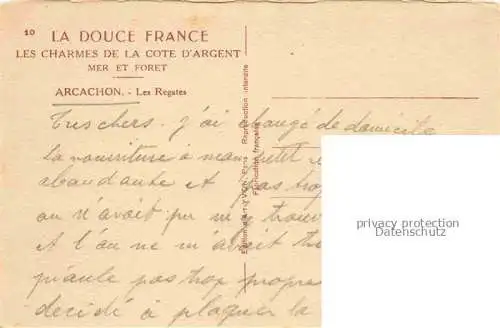 10 LA DOUCE FRANCE
LES CHARMES DE LA COTE D'ARGENT
MER ET FORET
ARCACHON. - Les Regates
Reproduction interdite
Fabrication française
Tres chers. J'ai changé de domicile
la nourriture à mon petit
abandante et pas trop
on n'avait pu me trouv
et l'on ne m'avait
pas trop propre
décidé à plaquer la
privacy protection
Datenschutz